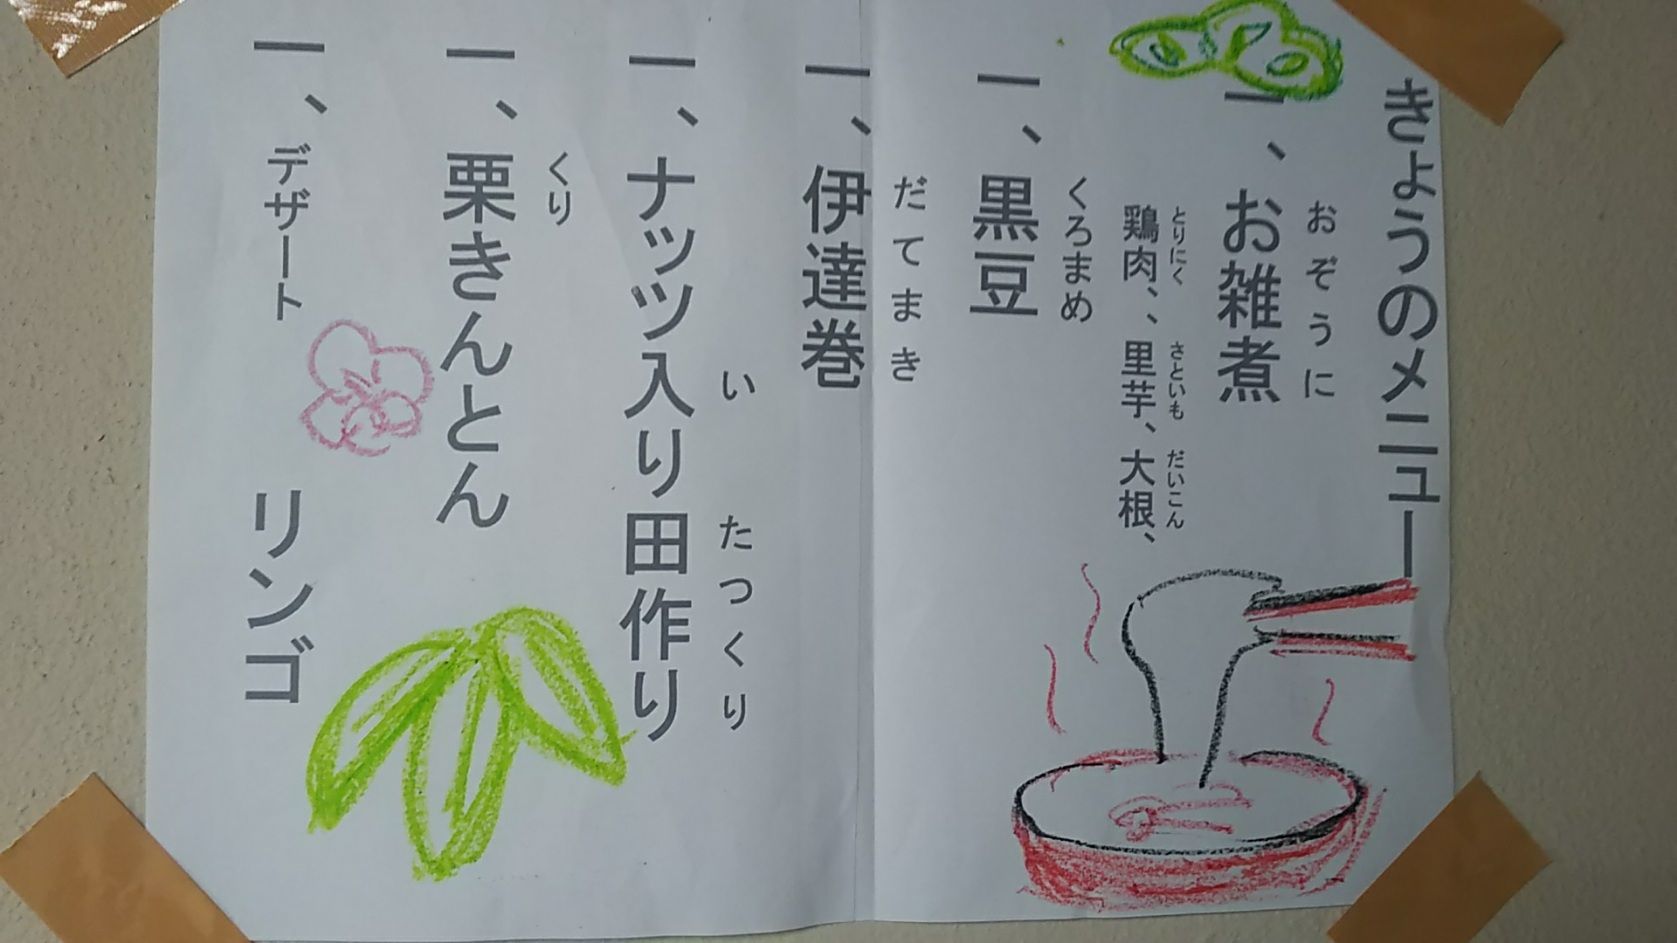 きょうのメニュー
おぞうに
一、お雑煮
とりにく さといも だいこん
鶏肉、、里芋、大根、
くろまめ
一、黒豆
だてまき
一、伊達巻
い たつくり
一、ナッツ入り田作り
くり
一、栗きんとん
一、デザート リンゴ